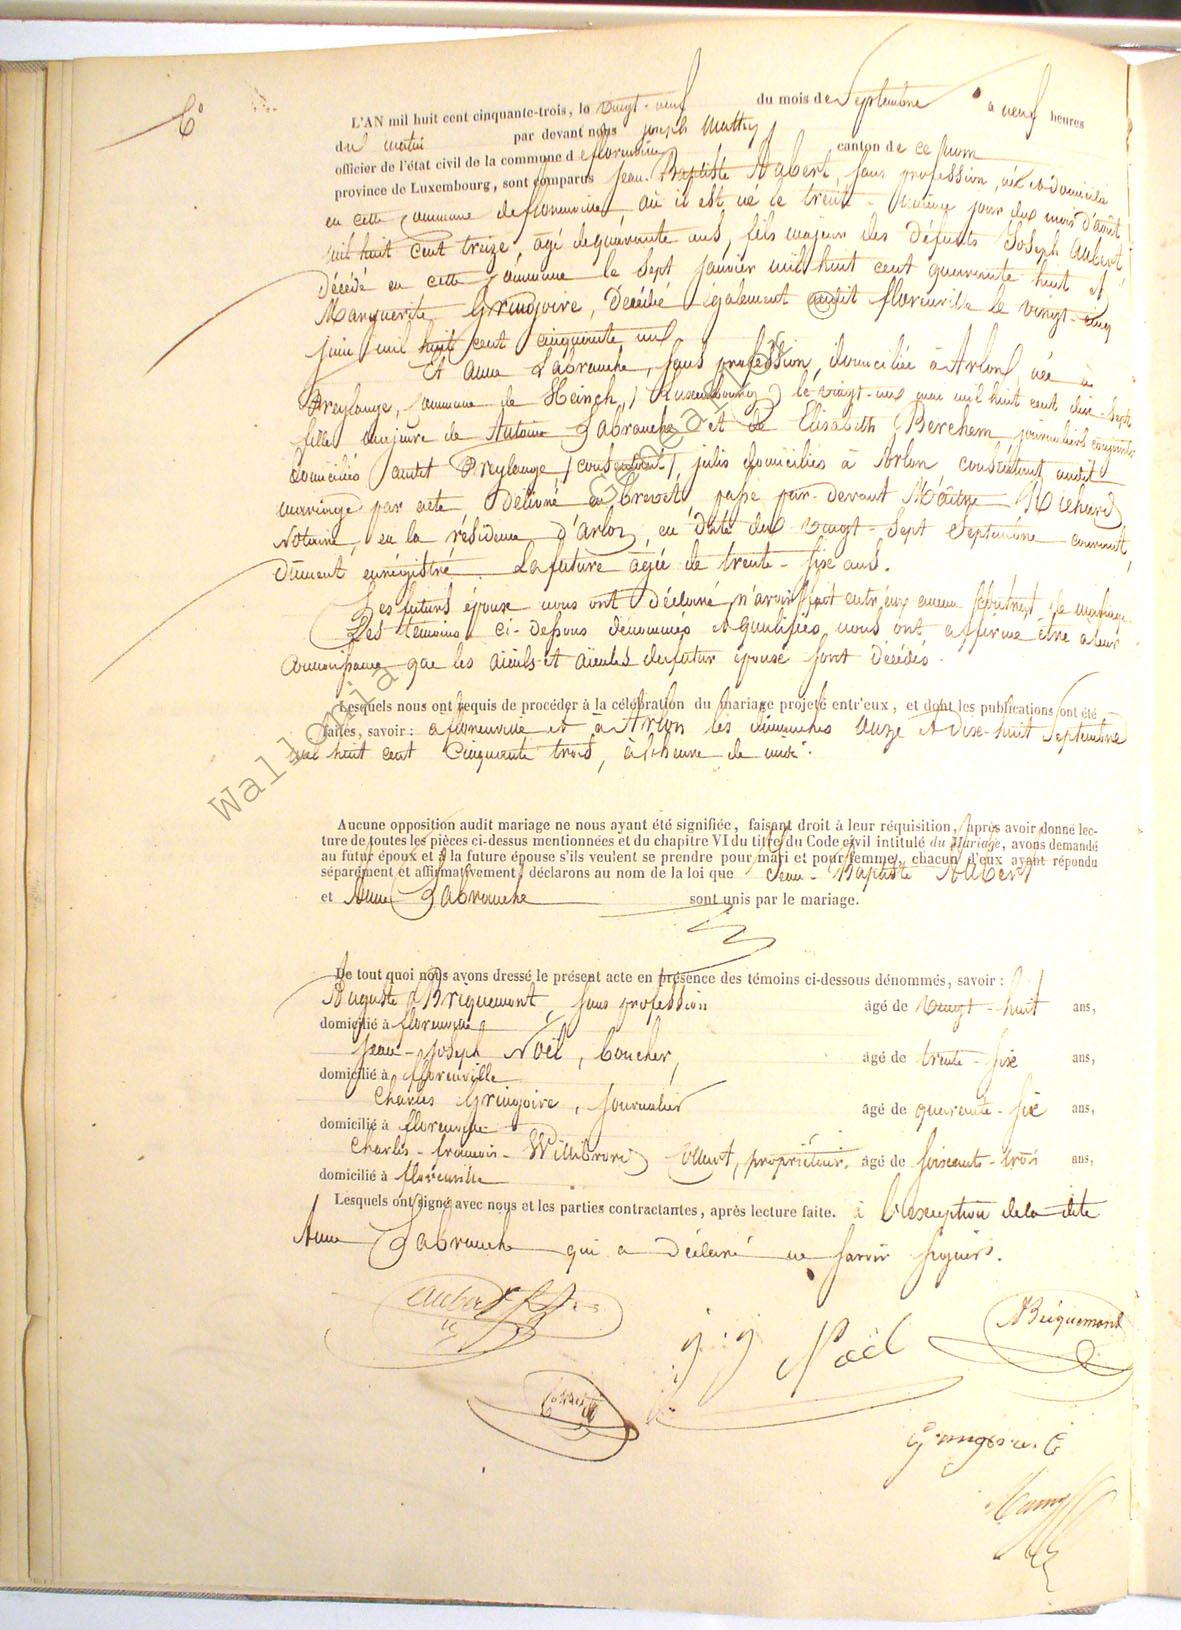 6°
L'AN mil huit cent cinquante-trois, le vingt-neuf du mois de Septembre à neuf heures
du matin par devant nous Joseph Mathy
officier de l'état civil de la commune de florenville canton de ce nom
province de Luxembourg, sont comparus Jean-Baptiste Aubert, sans profession, né et domicilié
en cette commune de florenville, où il est né le trente-unième jour du mois d'août
mil huit cent treize, âgé de quarante ans, fils majeur des défunts Joseph Aubert
Décédé en cette commune le sept janvier mil huit cent quarante huit et
Marguerite Gringoire, Décédée également audit florenville le vingt-cinq
juin mil huit cent cinquante un
Et Anne Labranche, sans profession, domiciliée à Arlon née à
Freylange, commune de Heinch, (Luxembourg) le vingt-un mai mil huit cent dix-sept
fille majeure de Antoine Labranche et de Elisabeth Berchem journaliers conjoints
domiciliés audit Freylange (consentants), jadis domiciliés à Arlon consentant audit
mariage par acte Délivré en brevet, passé par-devant Maître Richard
Notaire, en la résidence d'Arlon, en date du vingt-sept Septembre courant,
Dûment enrégistré. La future âgée de trente-six ans.
Les futurs époux nous ont Déclaré n'avoir fait entr'eux aucun contrat de mariage.
Les témoins ci-dessous dénommés et qualifiés nous ont affirmé être à leur
connaissance que les aïeuls et aïeules du futur époux sont Décédés.
Lesquels nous ont requis de procéder à la célébration du mariage projeté entr'eux, et dont les publications ont été
faites, savoir: à florenville et à Arlon les dimanches onze et dix-huit Septembre
mil huit cent cinquante trois, à l'heure de midi.
Aucune opposition audit mariage ne nous ayant été signifiée, faisant droit à leur réquisition, après avoir donné lec-
ture de toutes les pièces ci-dessus mentionnées et du chapitre VI du titre du Code civil intitulé du Mariage, avons demandé
au futur époux et à la future épouse s'ils veulent se prendre pour mari et pour femme, chacun d'eux ayant répondu
séparément et affirmativement, déclarons au nom de la loi que Jean-Baptiste Aubert
et Anne Labranche sont unis par le mariage.
De tout quoi nous avons dressé le présent acte en présence des témoins ci-dessous dénommés, savoir:
Auguste Briquemont, sans profession âgé de vingt-huit ans,
domicilié à florenville
Jean-Joseph Noël, boucher, âgé de trente-six ans,
domicilié à florenville
Charles Gringoire, journalier âgé de quarante-six ans,
domicilié à florenville
Charles-francois-Willibrord Collart, propriétaire, âgé de soixante-trois ans,
domicilié à florenville
Lesquels ont signé avec nous et les parties contractantes, après lecture faite. à l'exception de la dite
Anne Labranche qui a déclaré ne savoir signer.
Aubert
ABriquemont
j j Noël
Gringoire C
WallOnia Genealogy